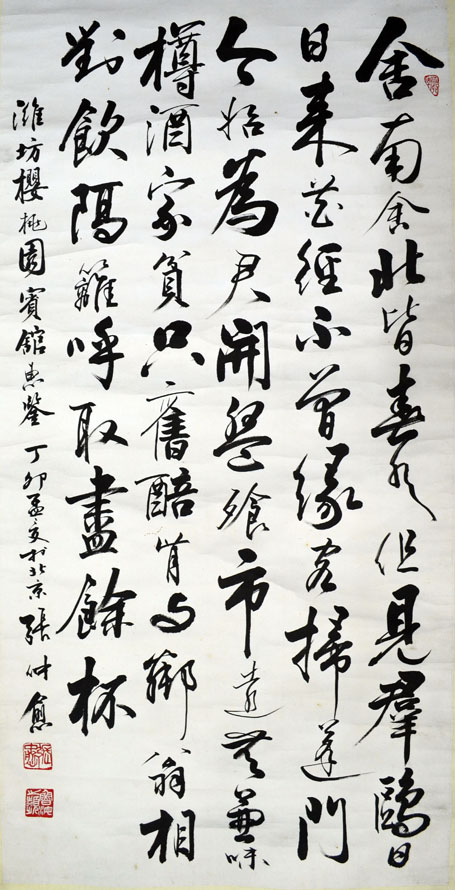 舍南舍北皆春水但見群鷗日
日来花徑不曾緣客掃蓬門
今始為君開盤飱市遠無兼味
樽酒家貧只舊醅肯与鄰翁相
對飲隔籬呼取盡餘杯
濰坊櫻桃園賓館惠鑒丁卯孟夏於北京張仲愈